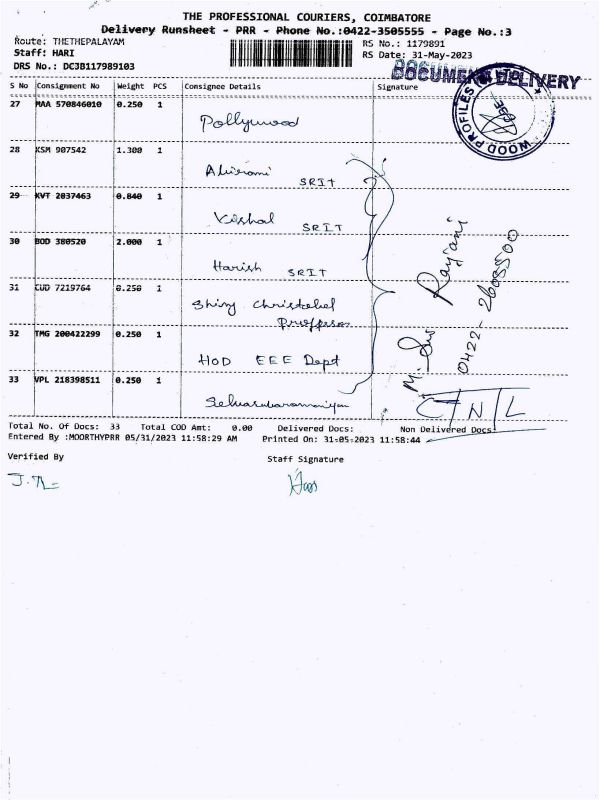 THE PROFESSIONAL COURIERS, COIMBATORE
Delivery Runsheet - PRR - Phone No.:0422-3505555 - Page No.:3
Route: THETHEPALAYAM
RS No.: 1179891
Staff: HARI
RS Date: 31-May-2023
DRS No.: DC3B117989103
DOCUMENT DELIVERY
S No Consignment No Weight PCS Consignee Details Signature
WOOD PROFILES
CBE
27 MAA 570846010 0.250 1
Pollywood
28 KSM 907542 1.300 1
Abirami SRIT
29 KVT 2037463 0.840 1
Vishal SRIT
30 BOD 380520 2.000 1
Harish SRIT
31 CUD 7219764 0.250 1
Shiny Christobel
Professor
32 TMG 200422299 0.250 1
HOD EEE Dept
33 VPL 218398511 0.250 1
M. Rajani
0422-2605500
C T N L
Total No. Of Docs: 33 Total COD Amt: 0.00 Delivered Docs: Non Delivered Docs:
Entered By :MOORTHYPRR 05/31/2023 11:58:29 AM Printed On: 31-05-2023 11:58:44
Verified By
Staff Signature